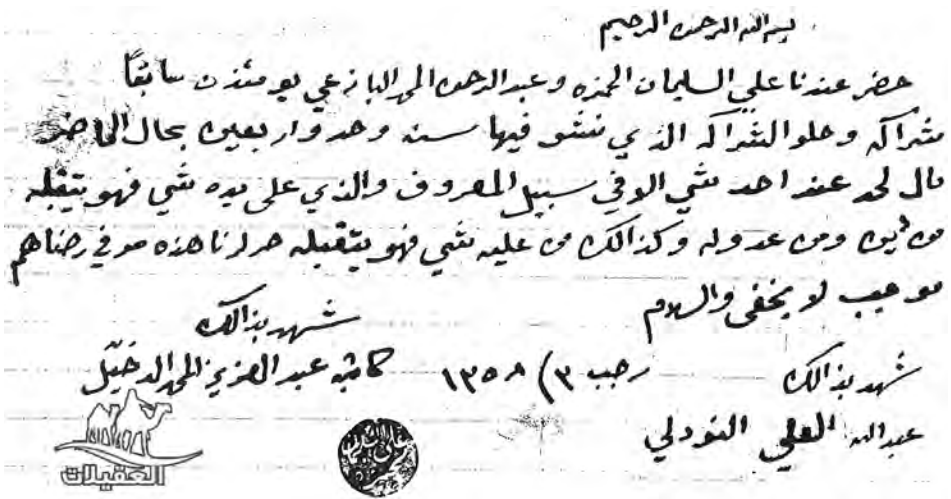 بسم الله الرحمن الرحيم
حضر عندنا علي السليمان الحمزه وعبد الرحمن المحمد البازعي يومئذن سابقاً
شراكه وحلو الشراكه الذي فيها سنه وحد واربعين بحال
مال لحد عند احد شي الا في سبيل المعروف والذي على يده شي فهو يتقبله
من ومن عدوله وكذالك من عليه شي فهو يتقبله هذه في رضاهم
موجب لا يخفى والسلام
شهد بذالك
شهد بذالك
رجب ٣) ١٣٥٨
كاتبه عبد العزيز المحمد الدخيّل
عبدالله العلي
العقيلات